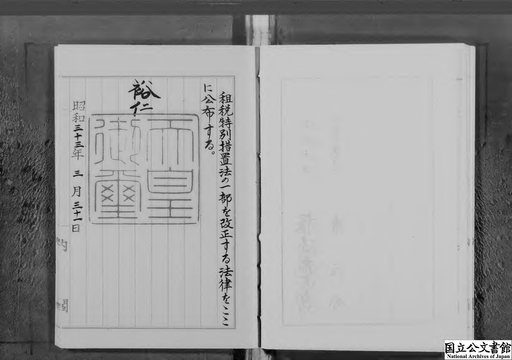 租税特別措置法の一部を改正する法律をここ
に公布する。
裕仁
天皇
御璽
昭和三十三年三月三十一日
国立公文書館
National Archives of Japan